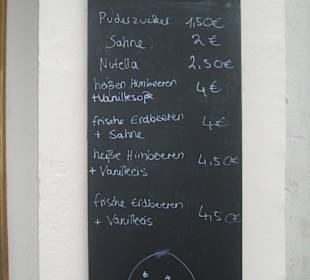 Puderzucker 1,50€
Sahne 2€
Nutella 2,50€
heißen Himbeeren
+Vanillesoße 4€
frische Erdbeeren
+ Sahne 4€
heiße Himbeeren
+ Vanilleeis 4,50€
frische Erdbeeren
+ Vanilleeis 4,50€